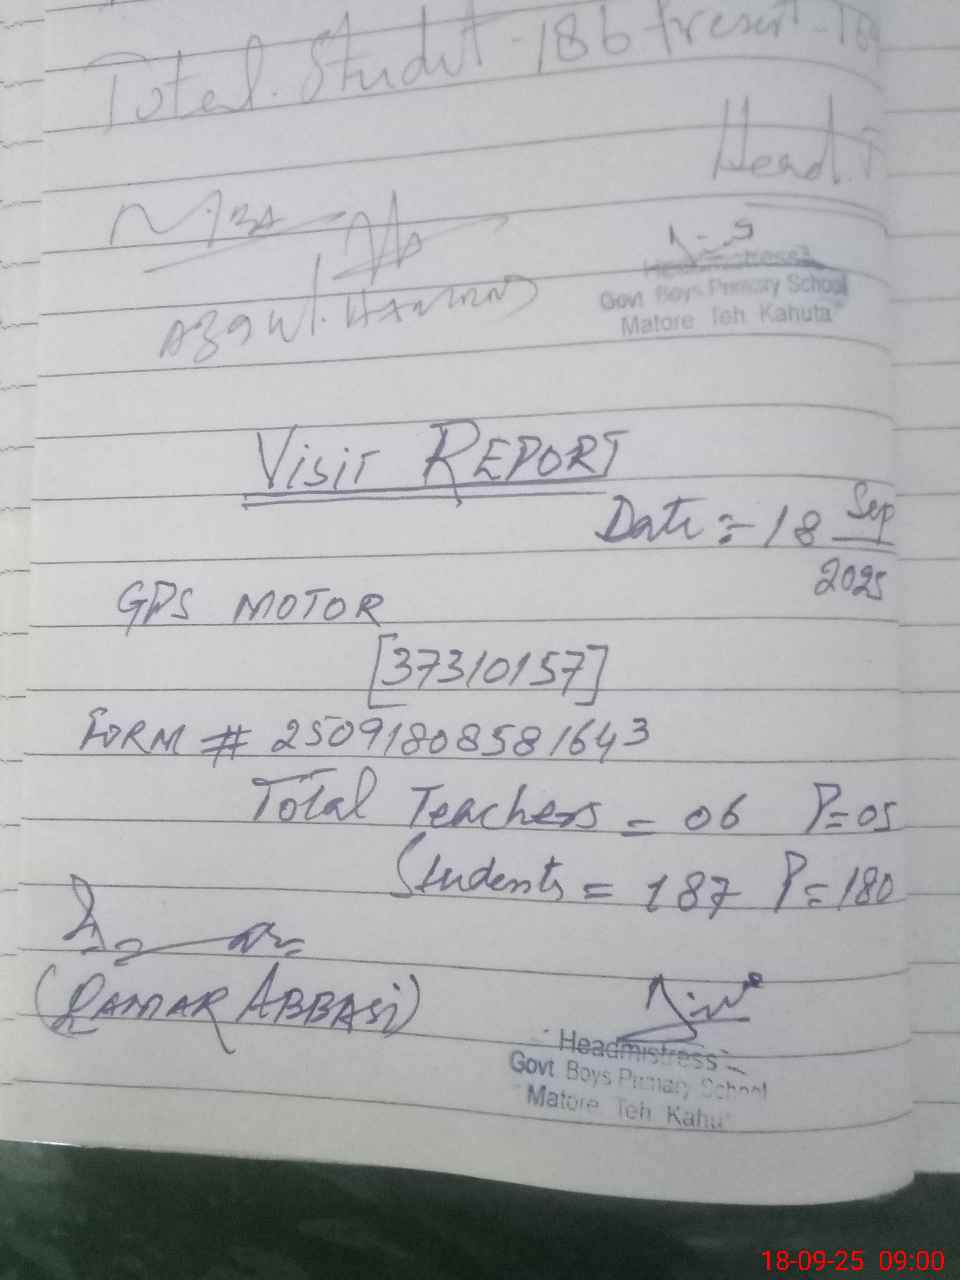 Total Studet - 186 Present - 18
Head.T
Headmistress
Govt Boys Primary School
Matore Teh Kahuta
VISIT REPORT
Date :- 18 Sep
2025
GPS MOTOR
[37310157]
FORM # 250918085581643
Total Teachers = 06 P=05
Students = 187 P=180
(QAMAR ABBASI)
Headmistress
Govt Boys Primary School
Matore Teh Kahu
18-09-25 09:00